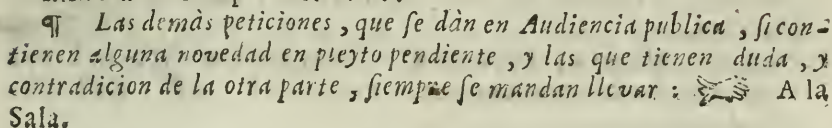 ¶ Las demàs peticiones, que ſe dàn en Audiencia publica, ſi con-
tienen alguna novedad en pleyto pendiente, y las que tienen duda, y
contradicion de la otra parte, ſiempre ſe mandan llevar : ☞ A la
Sala.